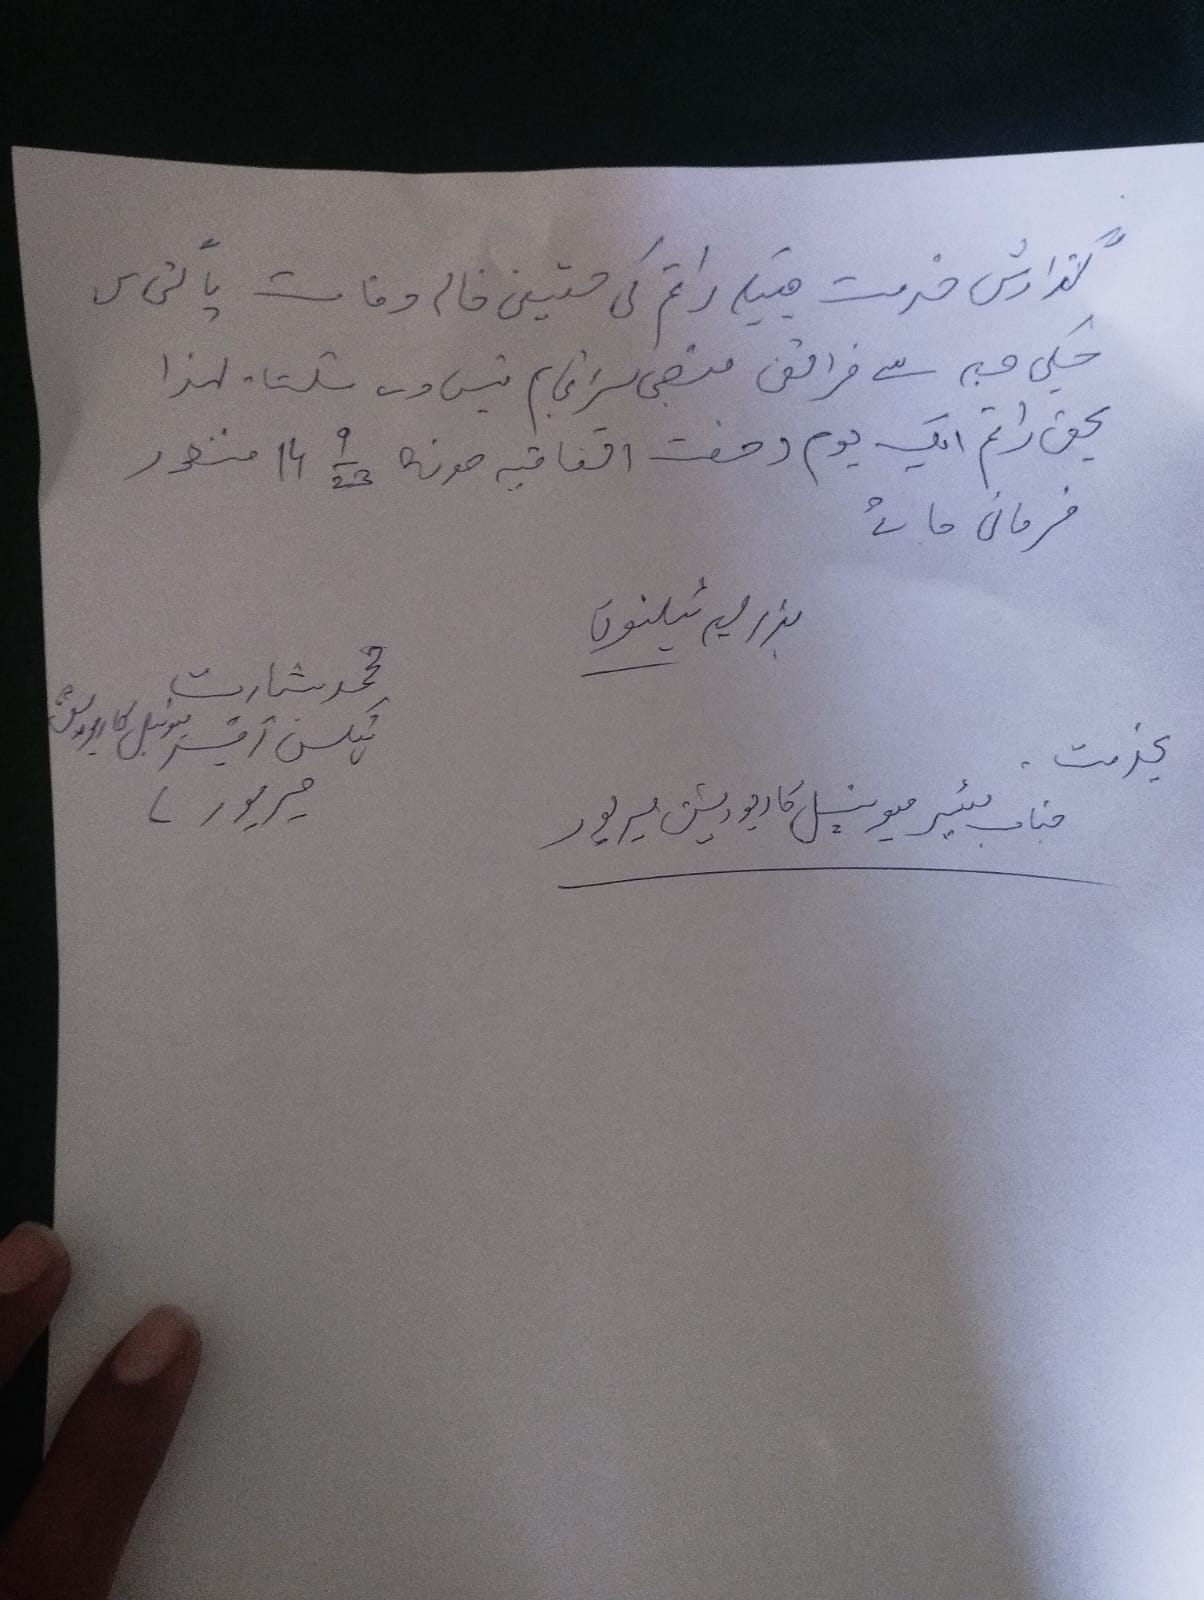 گذارش خدمت ہیکہ راقم کی حقیقی خالہ وفات پا گئی ہیں
جسکی وجہ سے فرائض منصبی سرانجام نہیں دے سکتا۔ لہذا
بحق راقم ایک یوم رخصت اتفاقیہ مورخہ 14 9/23 منظور
فرمائی جائے
بذریعہ ٹیلیفون
محمد بشارت
ٹیکس آفیسر میونسپل کارپوریشن
میرپور
بخدمت۔
جناب میئر میونسپل کارپوریشن میرپور